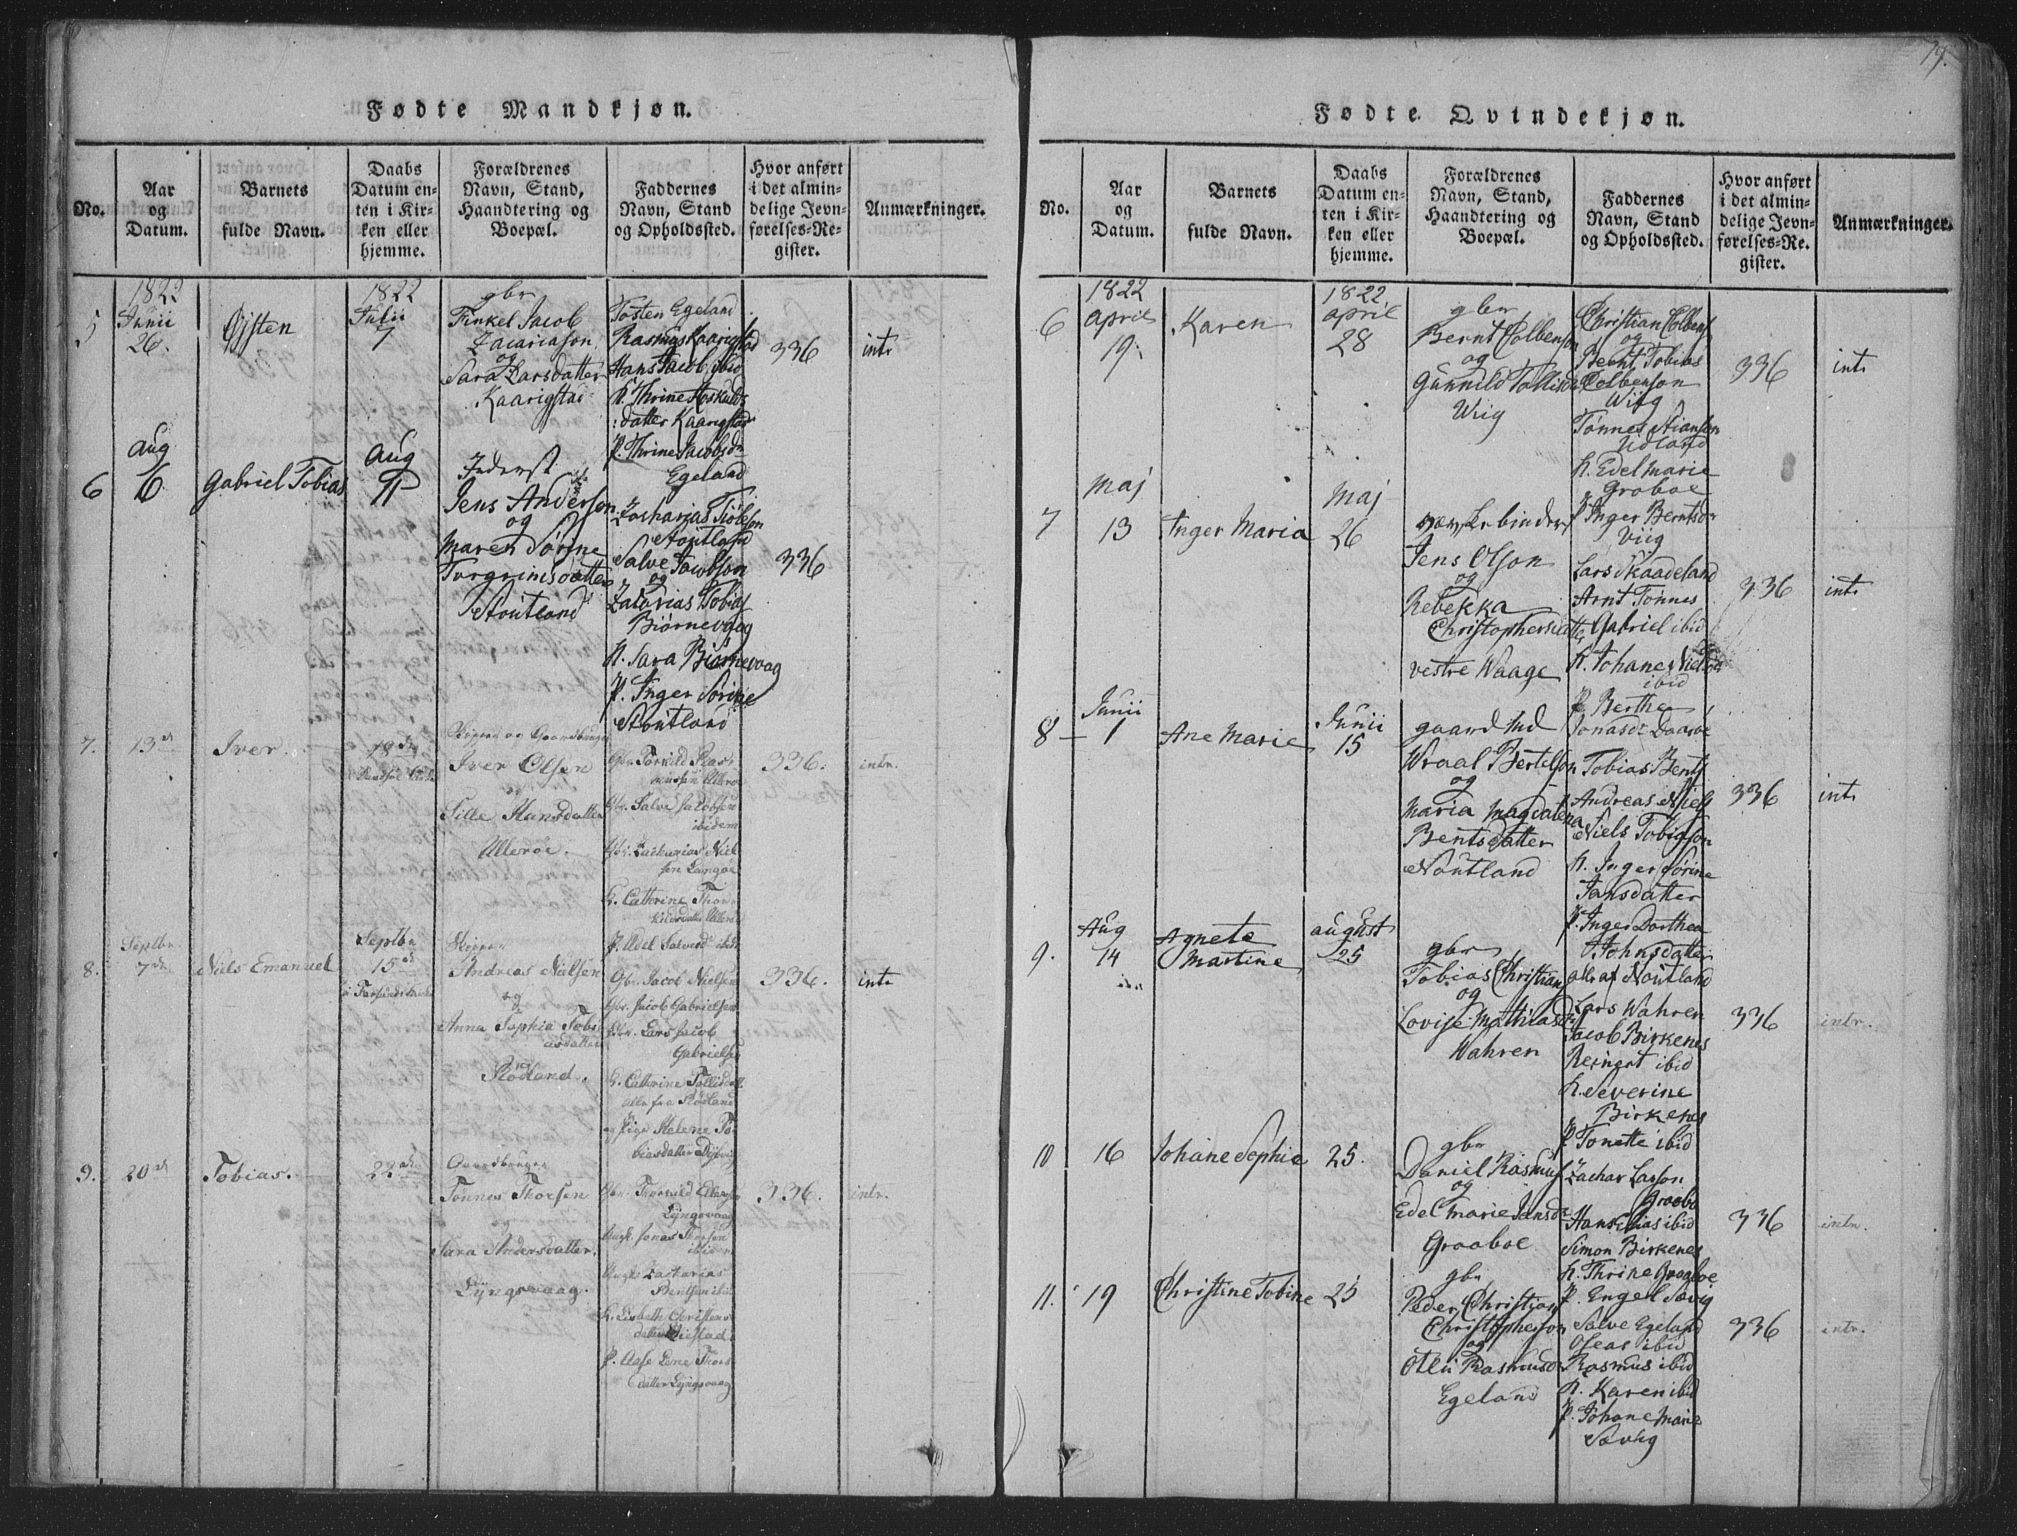 79.
Fødte Mandkjøn.
No.
Aar
og
Datum.
Barnets
fulde Navn.
Daabs
Datum en-
ten i Kir-
ken eller
hjemme.
Forældrenes
Navn, Stand,
Haandtering og
Boepæl.
Faddernes
Navn, Stand
og Opholdssted.
Hvor anført
i det almin-
delige Jevn-
førelses-Re-
gister.
Anmærkninger.
5
1822
Junii
26.
Øisten
1822
Julii
7
gbr
Finkel Jacob
Zacariason
og
Sara Larsdatter
Kaarigstad
Tosten Egeland
Rasmus Kaarigstad
Hans Jacob ibid
K. Thrine Askulds
datter Kaarigstad
P. Thrine Jacobsdr
Egeland
336
intr
6
Aug
6
Gabriel Tobias
Aug
11
Inderst
Jens Anderson
og
Maren Sørine
Torgrimsdatter
Stoutland
Zacharias
Stoutland
Salve Jacobson
og
Zacarias Tobias
Biørnevaag
K. Sara Biørnevaag
P. Inger Sørine
Stoutland
336
7.
13de
Iver.
18de
Skipper og Gaardbruger
Iver Olsen
og
Sille Hansdatter
Allerøe.
Gbr. Torkild Ras-
mussen Allerøe
Gbr. Salve Jacobsen
ibidem
Gbr. Zacharias Niel-
sen Langøe
K. Cathrine Thor-
kildsdatter Allerøe
P. Edel Salvesdr ibid
336.
intr.
8.
Septbr
7de
Niels Emanuel
Septbr
15de
i Farsunds Kirke
Skipper
Andreas Nielsen
og
Anna Sophia Tobi-
asdatter
Rødland.
Gbr. Jacob Nielsen
Gbr. Jacob Gabrielsen
Gbr. Lars Jacob
Gabrielsen
K. Cathrine Tollisdatt.
alle fra Rødland
og Pige Helene To-
biasdatter
336.
intr
9.
20de
Tobias.
22de
Gaardbruger
Tønnes Thorsen
og
Sara Andersdatter.
Lyngsvaag.
Gbr. Thorkild
Lyngsvaag
Ungk. Jonas Thorsen
ibidem
Ungk. Zacharias
Bentsen ibid
K. Lisbeth Christens-
datter
P. Aase Lene Thors-
datter Lyngsvaag
336.
intr.
Fødte Qvindekjøn.
No.
Aar
og
Datum.
Barnets
fulde Navn.
Daabs
Datum en-
ten i Kir-
ken eller
hjemme.
Forældrenes
Navn, Stand,
Haandtering og
Boepæl.
Faddernes
Navn, Stand
og Opholdssted.
Hvor anført
i det almin-
delige Jevn-
førelses-Re-
gister.
Anmærkninger.
6
1822
April
19
Karen
1822
April
28
gbr
Bernt Colbenson
og
Gunnild Tollisdr
Wiig
Christian Colbens
og
Bernt Tobias
Colbenson
Wiig
Tønnes Stianson
Udland
K. Edel Marie
Graboe
P. Inger Berntsdr
Viig
336
intr
7
Maj
13
Inger Maria
Maj
26
Jens Olson
og
Rebekka
Christophersdatter
vestre Waage
Lars Skaadeland
Arnt Tønnes
Gabriel ibid
K. Johane
ibid
P. Berthe
Jonasdr
336
intr
8
Junii
1
Ane Marie
Junii
15
gaardmd
Wraal Bertelson
og
Maria Magdalena
Bentsdatter
Noutland
Tobias Bents
Andreas Niels
Niels Tobiason
K. Inger Sørine
Jansdatter
P. Inger Dorthea
Johnsdatter
alle af Noutland
336
intr
9.
Aug
14
Agnete
Martine
August
25
gbr
Tobias Christians
og
Lovise Mathilasdr
Wahren
Lars Wahren
Jacob Birkenes
Reinert ibid
K. Severine
Birkenes
P. Tonette ibid
336
intr.
10
16
Johane Sophie
25.
gbr
Daniel Rasmus
og
Edel Marie Jansdr
Graaboe
Zachar Larson
Graaboe
Hans Elias ibid
Simon Birkenes
K. Thrine Graaboe
P. Engel Sævig
336
intr.
11.
19
Christine Tobine
25
gbr
Peder Christian
Christopherson
og
Rasmusd
Egeland
Salve Egeland
Osear ibid
Rasmus ibid
K. Karen ibid
P. Johane Marie
Sævig
336
intr.